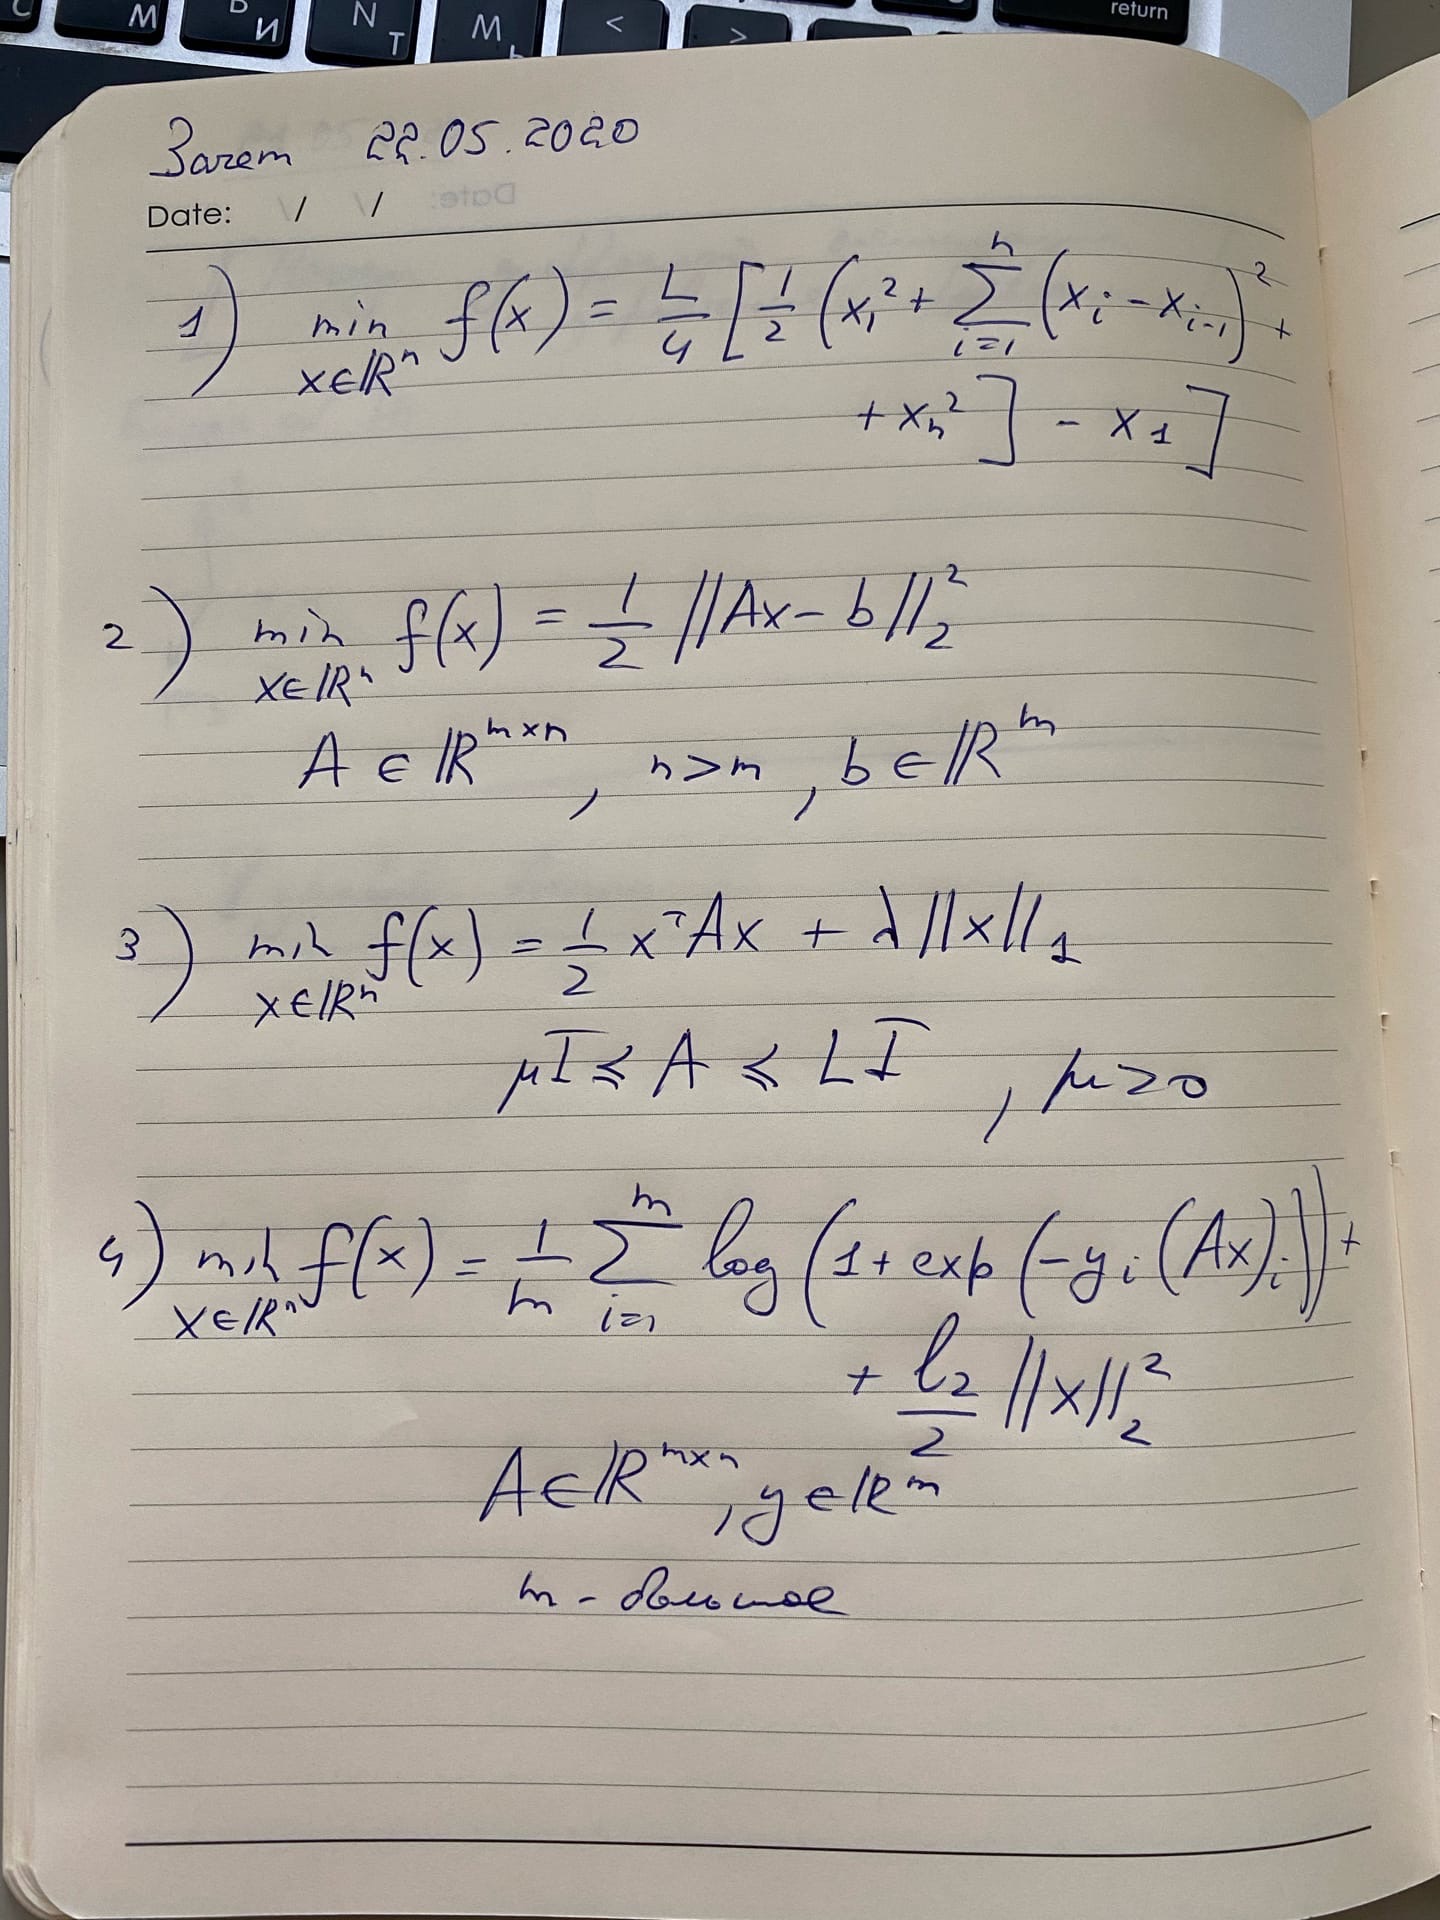 C M B И N T М Ь < > return
Зачет 22.05.2020
Date: / /
1) min f(x) = L/4 [1/2 (x₁² + ∑ᵢ₌₁ⁿ (xᵢ - xᵢ₋₁)² +
x∈ℝⁿ
+ xₙ²] - x₁]
2) min f(x) = 1/2 ||Ax - b||₂²
x∈ℝⁿ
A ∈ ℝᵐˣⁿ, n>m, b ∈ ℝᵐ
3) min f(x) = 1/2 xᵀAx + λ||x||₁
x∈ℝⁿ
μI ≼ A ≼ LI, μ>0
4) min f(x) = 1/m ∑ᵢ₌₁ᵐ log(1+exp(-yᵢ(Ax)ᵢ)) +
x∈ℝⁿ
+ l₂/2 ||x||₂²
A∈ℝᵐˣⁿ, y∈ℝᵐ
m - большое